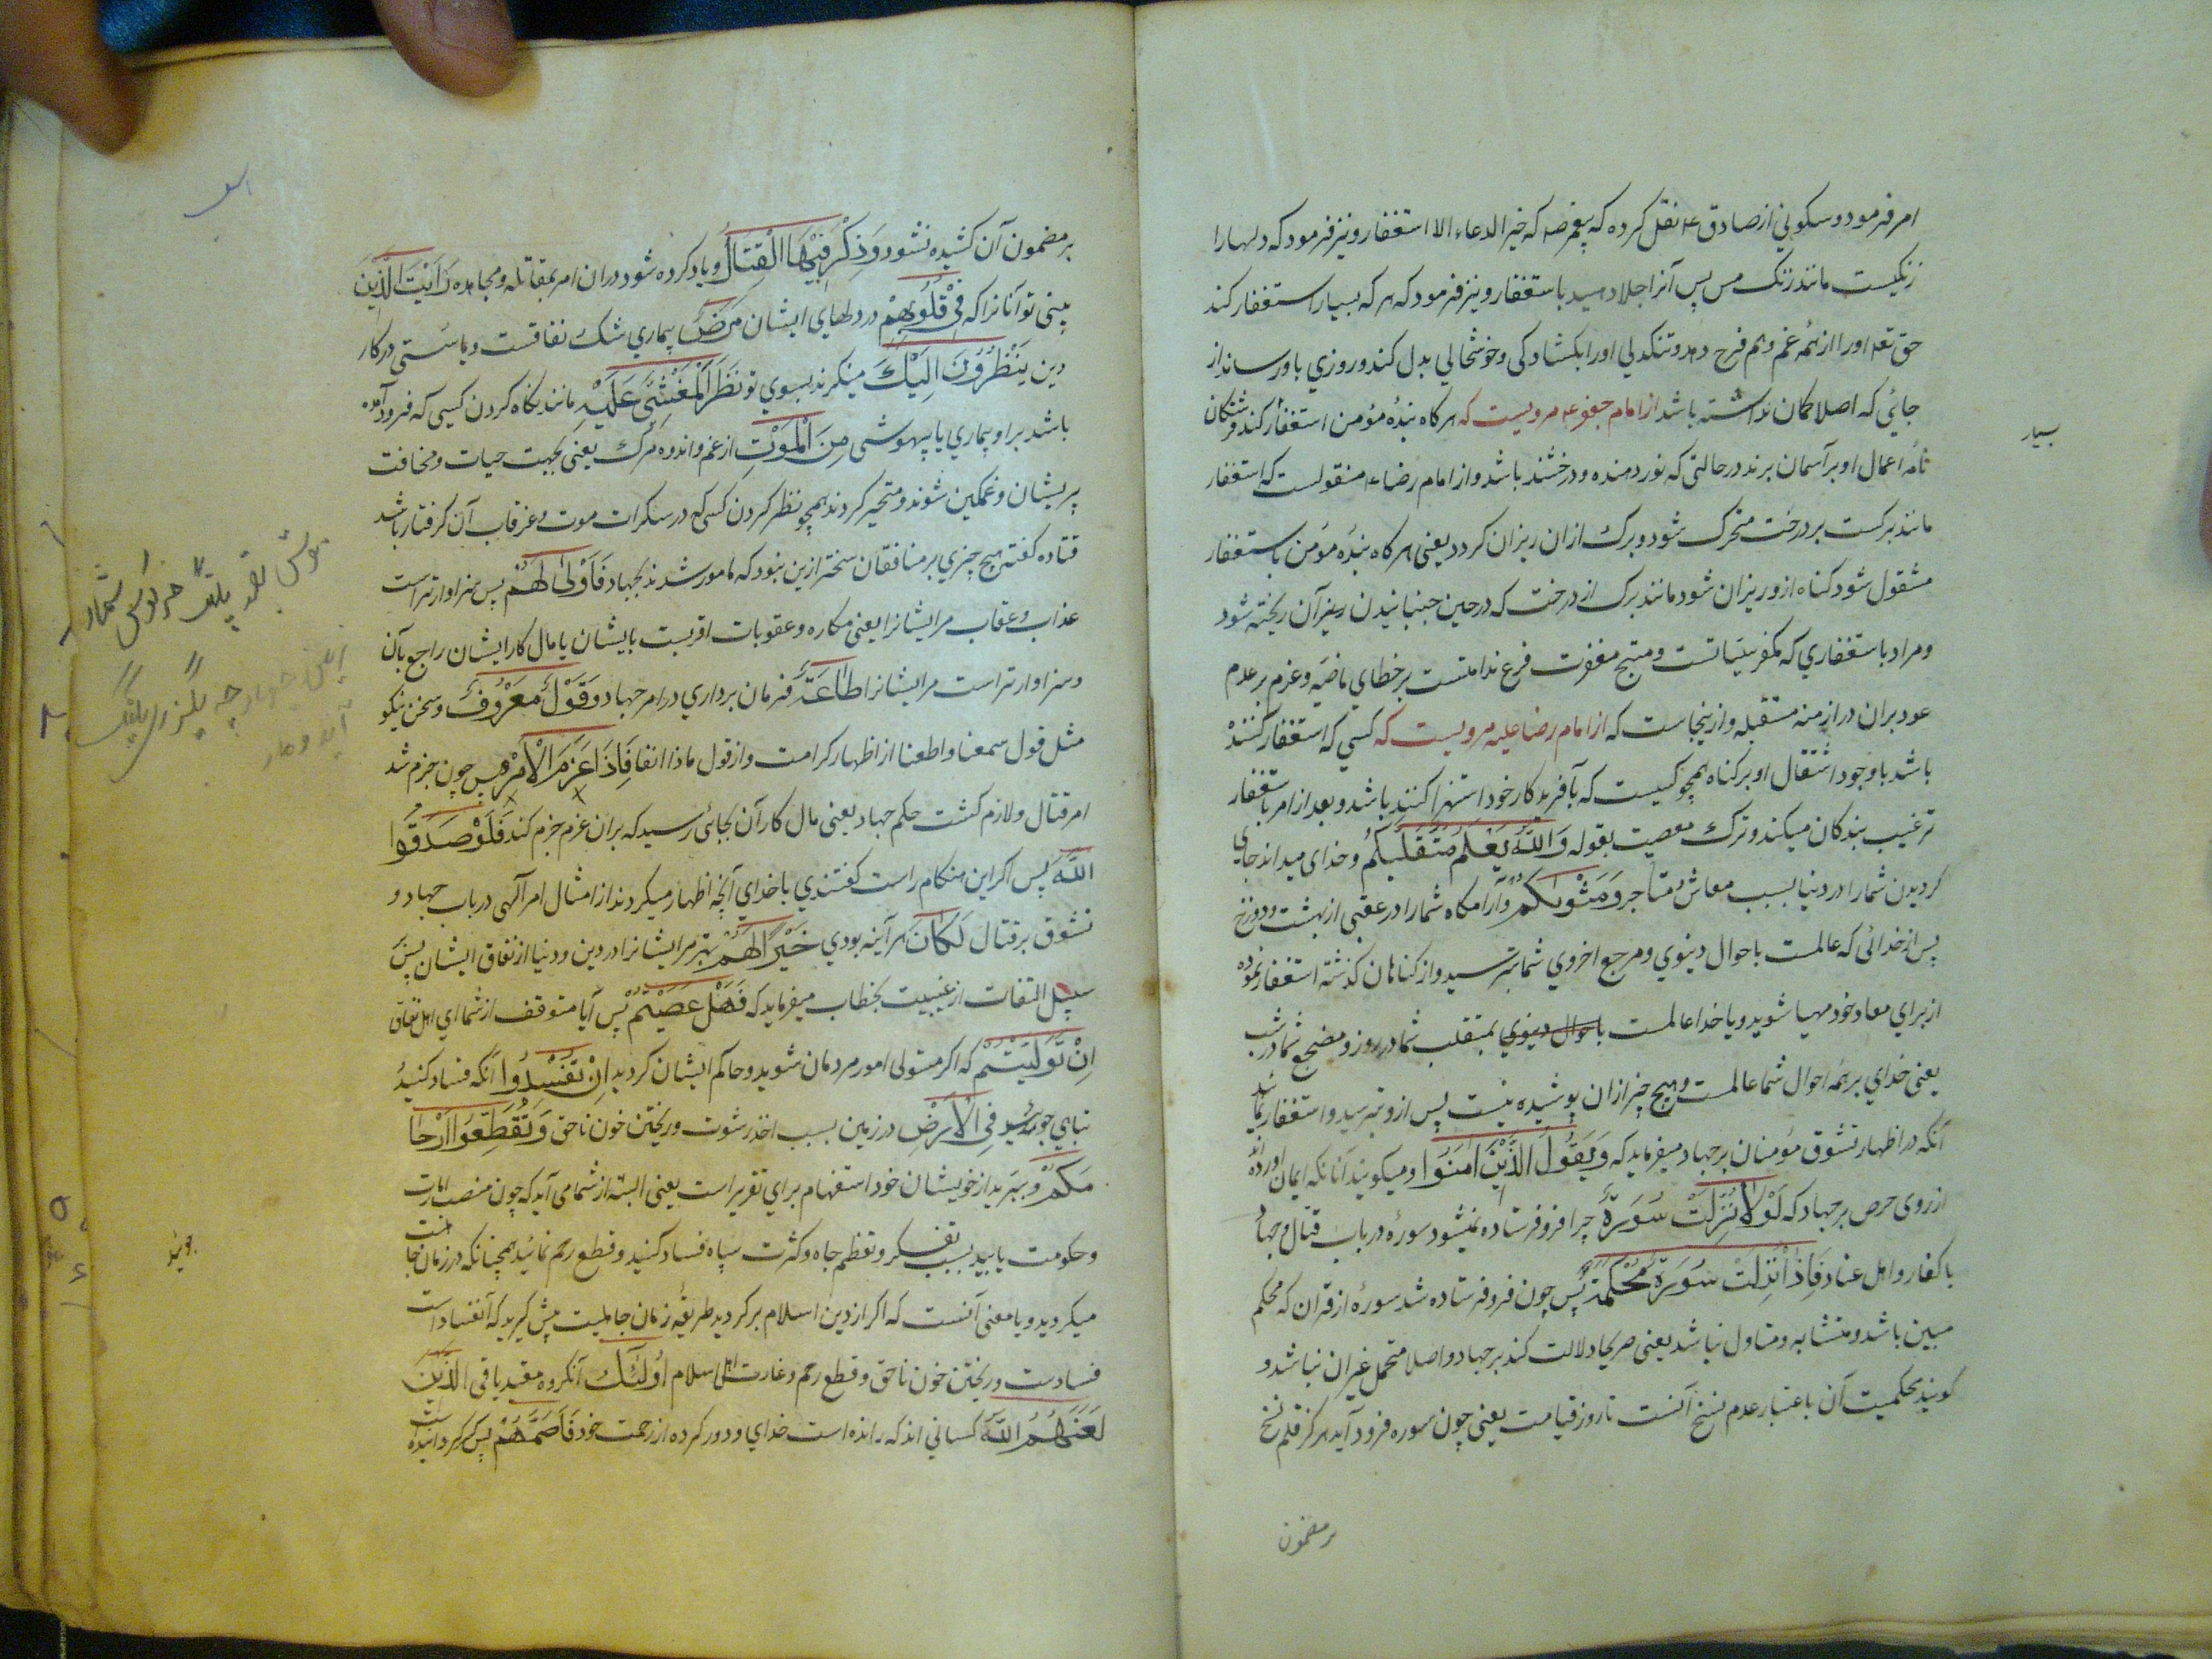 امر فرمود و سکونی از صادق ع نقل کرده که پیغمبر ص که خیر الدعاء الا استغفار و نیز فرمود که دلها را
زنکیست مانند زنک مس پس آنرا جلا دهید باستغفار و نیز فرمود که هر که بسیار استغفار کند
حق تعه او را از همه غم و هم فرج دهد و تنکدلی او را بکشادکی و خوشحالی بدل کند و روزی باو رساند از
جائی که اصلا کمان نداشته باشد از امام جعفر ع مرویست که هر کاه بندهٔ مؤمن استغفار کند فرشتکان
نامهٔ اعمال او بر آسمان برند در حالتی که نور دهنده و درخشنده باشد و از امام رضا ع منقولست که استغفار
مانند برکست بر درخت متحرک شود و برک ازان ریزان کردد یعنی هر کاه بندهٔ مؤمن باستغفار
مشغول شود کناه ازو ریزان شود مانند برک از درخت که در حین جنبانیدن ریز آن ریخته شود
و مراد باستغفاری که مکفر سیّئاتست و منتج مغفرت فرع ندامتست بر خطای ماضیه و عزم بر عدم
عود بران در ازمنه مستقبله و ازینجاست که از امام رضا علیه مرویست که کسی که استغفار کننده
باشد با وجود اشتغال او بر کناه همچو کسیست که بآفریدکار خود استهزا کننده باشد و بعد از امر باستغفار
ترغیب بندکان میکند و ترک معصیت بقوله وَاللّٰهُ یَعْلَمُ مُتَقَلَّبَکُمْ و خدای میداند جای
کردیدن شما را در دنیا بسبب معاش و متاجر وَمَثْوٰیکُمْ و آرامکاه شما را در عقبی از بهشت و دوزخ
پس از خدائی که عالمست باحوال دنیوی و مرجع اخروی شما بترسید و از کناهان کذشته استغفار نموده
از برای معاد خود مهیا شوید و یا خدا عالمست باحوال دنیوی بمتقلب شما در روز و مضجع شما در شب
یعنی خدای بر همه احوال شما عالمست و هیچ چیز ازان پوشیده نیست پس ازو بترسید و استغفار نمائید
آنکه در اظهار تشوق مؤمنان بر جهاد میفرماید که وَیَقُولُ الَّذِیْنَ اٰمَنُوا و میکویند آنانکه ایمان اورده اند
از روی حرص بر جهاد که لَوْلَا نُزِّلَتْ سُوْرَةٌ چرا فرو فرستاده نمیشود سورهٔ در باب قتال و جهاد
با کفار و اهل عناد فَاِذَا اُنْزِلَتْ سُورَةٌ مُحْکَمَةٌ پس چون فرو فرستاده شد سورهٔ از قران که محکم
مبین باشد و متشابه و متاول نباشد یعنی صریحا دلالت کند بر جهاد و اصلا متحمل غیر ان نباشد و
کویند محکمیت آن باعتبار عدم نسخ آنست تا روز قیامت یعنی چون سوره فرود آید هرکز قلم نسخ
بر مضمون
بسیار
بر مضمون آن کشیده نشود وَذُکِرَ فِیْهَا الْقِتَالُ و یاد کرده شود دران امر بمقاتله و مجاهده رَاَیْتَ الَّذِیْنَ
بینی تو آنانرا که فِیْ قُلُوْبِهِمْ در دلهای ایشان مَرَضٌ بیماری شک نفاقست و یا سستی در کار
دین یَنْظُرُوْنَ اِلَیْکَ مینکرند بسوی تو نَظَرَ الْمَغْشِیِّ عَلَیْهِ مانند نکاه کردن کسی که فرود آمده
باشد بر او بیماری یا بیهوشی مِنَ الْمَوْتِ از غم و اندوه مرک یعنی بجهت حیات و مخافت
پریشان و غمکین شوند و متحیر کردند همچو نظر کردن کسی که در سکرات موت و غرقاب آن کرفتار باشد
قتاده کفته هیچ چیزی بر منافقان سختر ازین نبود که مامور شدند بجهاد فَاَوْلٰی لَهُمْ پس سزاوارتر است
عذاب و عقاب مر ایشانرا یعنی مکاره و عقوبات اقربست بایشان یا مال کار ایشان راجع بآن
و سزاوارتر است مر ایشانرا طَاعَةٌ فرمان برداری در امر جهاد وَقَوْلٌ مَعْرُوْفٌ و سخن نیکو
مثل قول سمعنا و اطعنا از اظهار کرامت و از قول ماذا انفا فَاِذَا عَزَمَ الْاَمْرُ پس چون جزم شد
امر قتال و لازم کشت حکم جهاد یعنی مال کار آن بجائی رسید که بران عزم جزم کند فَلَوْ صَدَقُوا
اللّٰهَ پس اکر این هنکام راست کفتندی با خدای آنچه اظهار میکردند از امثال امر الٓهی در باب جهاد و
تشوق بر قتال لَکَانَ هر آینه بودی خَیْرًا لَهُمْ بهتر مر ایشانرا در دین و دنیا از نفاق ایشان پس بر
سبیل التفات از غیبت بخطاب میفرماید که فَهَلْ عَسَیْتُمْ پس آیا متوقف از شما ای اهل نفاق
اِنْ تَوَلَّیْتُمْ که اکر متولی امور مردمان شوید و حاکم ایشان کردید اِنْ تُفْسِدُوا آنکه فساد کنید
فِی الْاَرْضِ در زمین بسبب اخذ رشوت و ریختن خون ناحق وَتُقَطِّعُوا اَرْحَا
مَکُمْ و ببرید از خویشان خود استفهام برای تقریر است یعنی البته از شما می آید که چون منصب امارت
و حکومت یابید بسبب تفکر و تعظم جاه و کثرت سپاه فساد کنید و قطع رحم نمائید همچنانکه در زمان جا
میکردید و یا معنی آنست که اکر از دین اسلام برکردید طریقهٔ زمان جاهلیت پیش کیرید که آن
فسادست و ریختن خون ناحق و قطع رحم و غارت اهل اسلام اُولٰئِکَ آنکروه مقید باقی الَّذِیْنَ
لَعَنَهُمُ اللّٰهُ کسانی اند که رانده است خدای و دور کرده از رحمت خود فَاَصَمَّهُمْ پس کر کردانیده